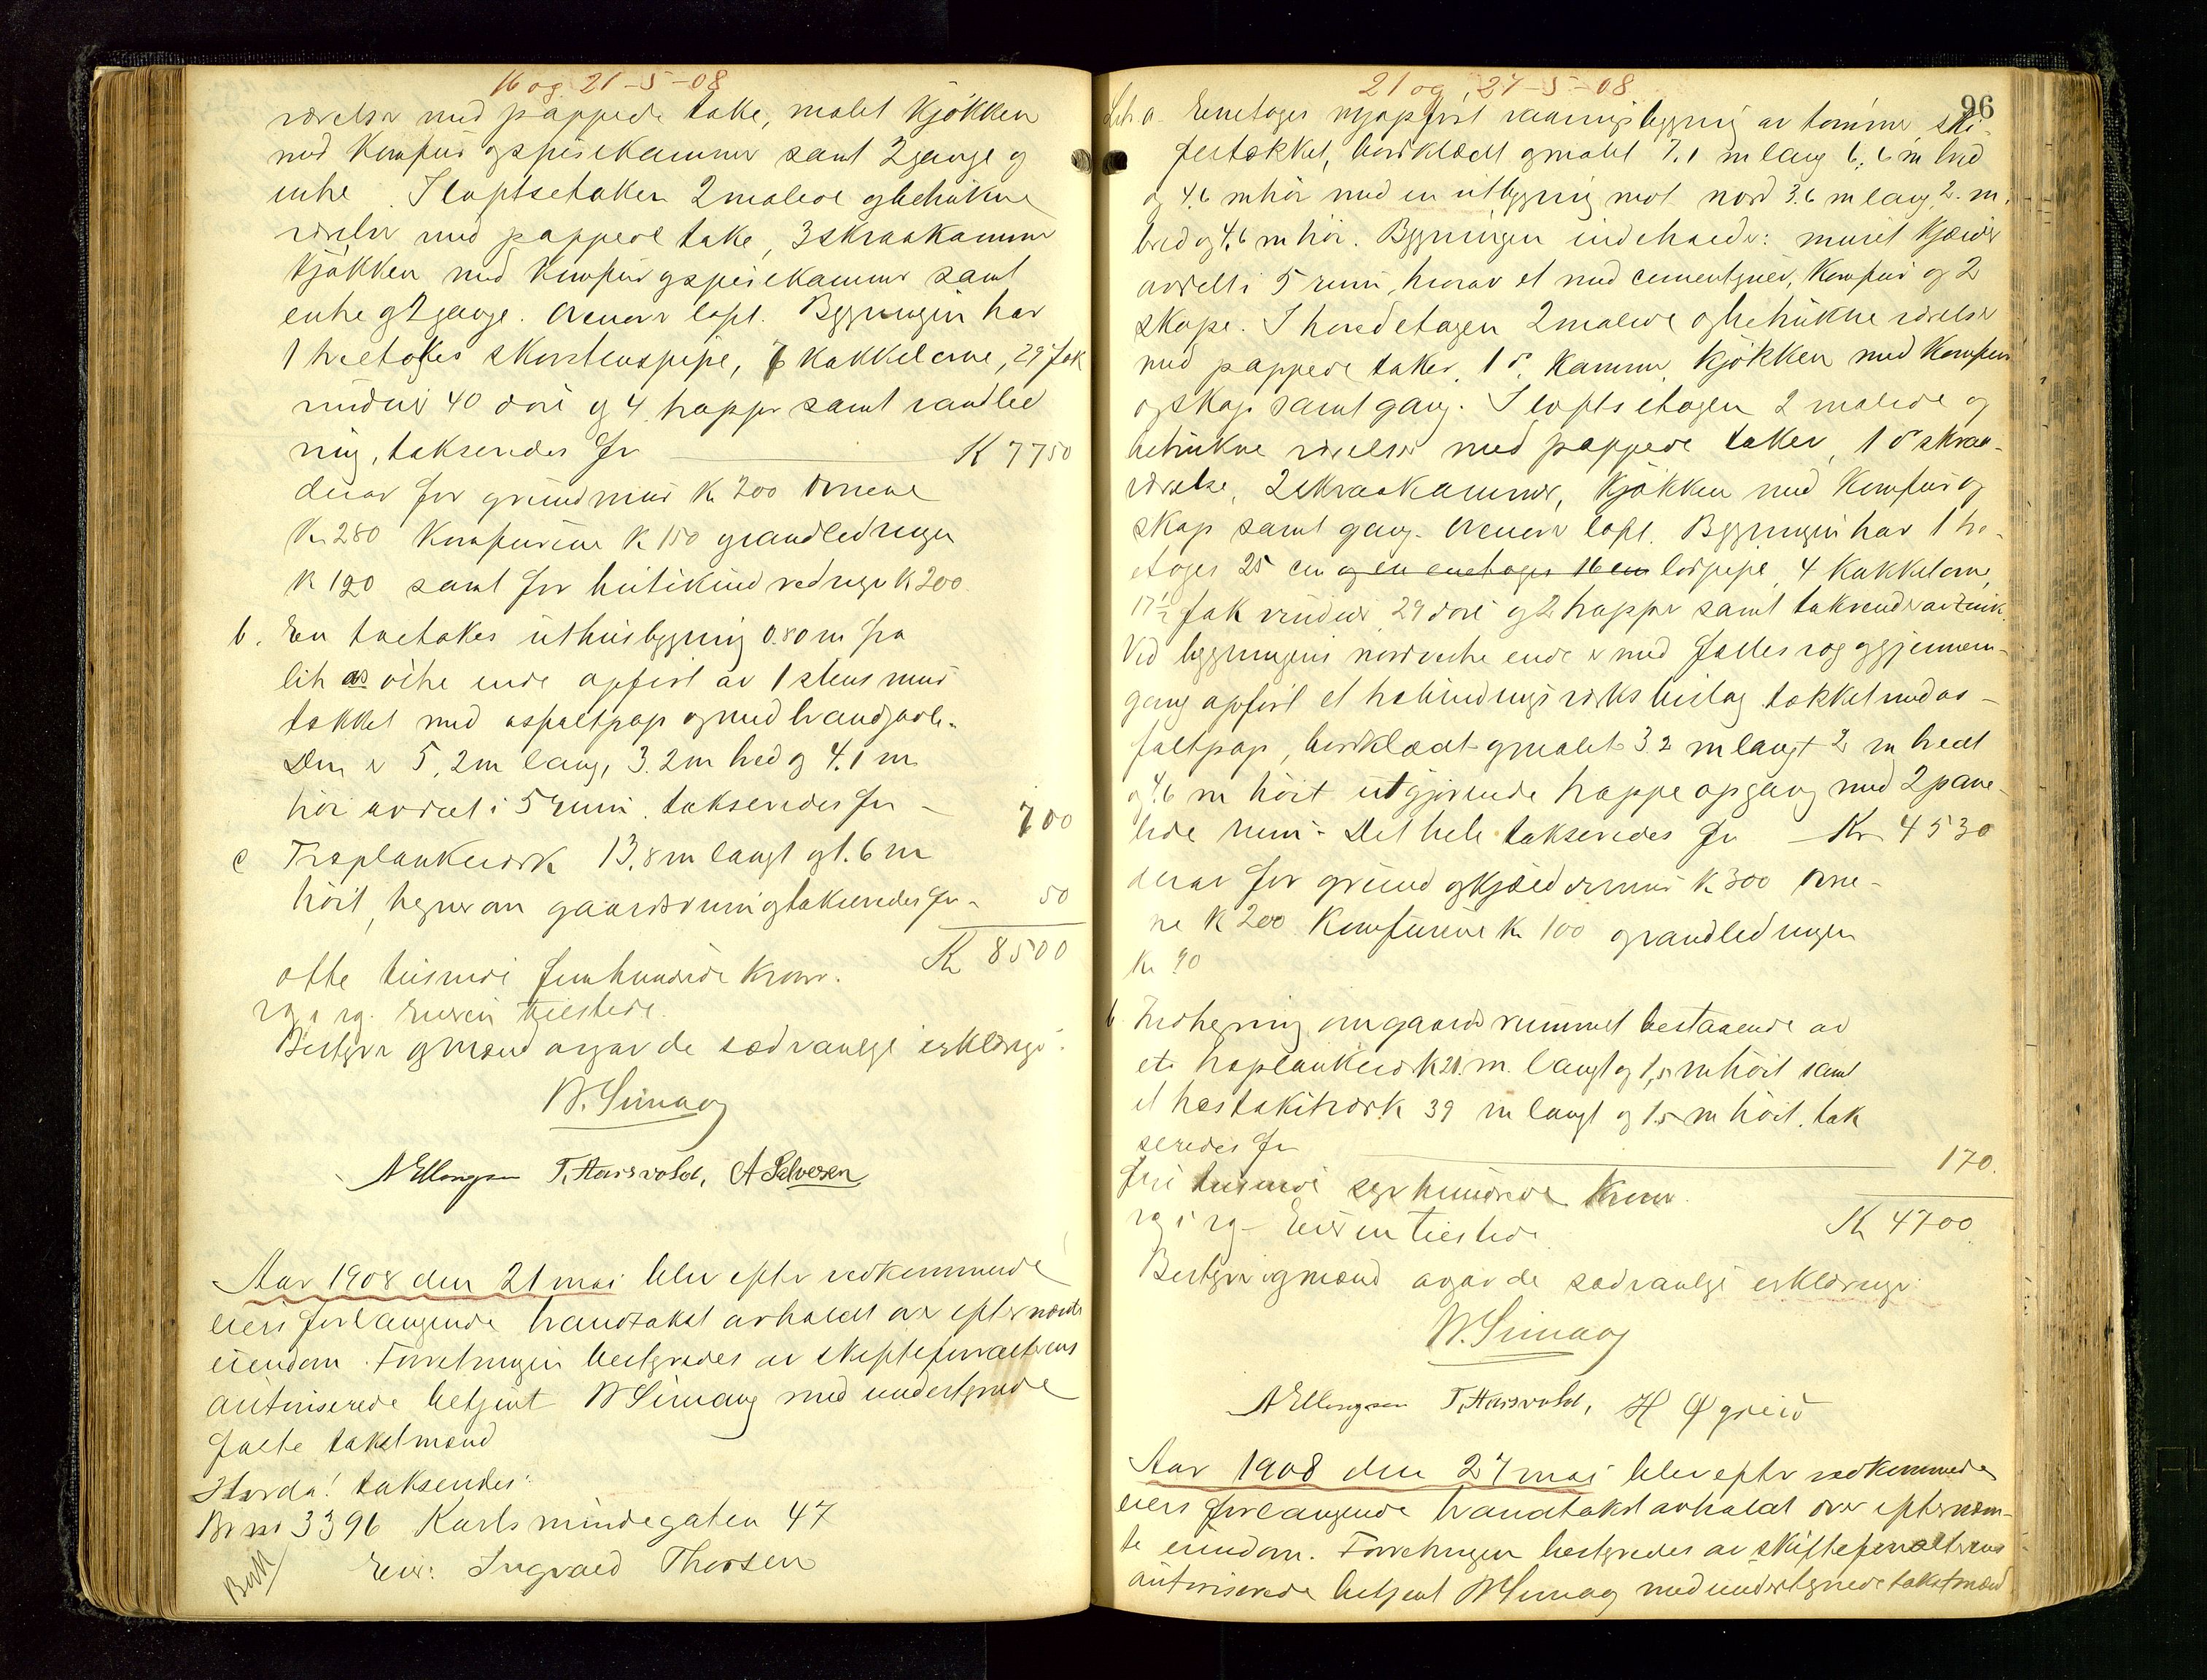 16 og 21-5-08
værelser med pappede take, malet kjøkken
med komfur og spisekammer samt 2 gange og
entre. I loftsetaken 2 malede og betrukne
værelser med pappede take, 3 skraakammer
kjøkken med komfur og spisekammer samt
entre og 2 gange. Ovenover loft. Bygningen har
1 treetakes skorstenspipe, 7 kakkelovne, 29 fak
vinduer 40 døre og 4 trapper samt vandled
ning, takseredes for K 7750
derav for grundmur Kr 200 ovnene
Kr 280 komfurene K 150 og vandledningen
K 120 samt for butikindredninger K 200
b. En toetakes uthusbygning 0.80 m fra
lit a's østre ende opført av 1 stens mur
tækket med asfaltpap og med brandgavle.
Den er 5,2 m lang, 3.2 m bred og 4.1 m
høi avdelt i 5 rum. takseredes for - 700
c Træplankeverk 13,8 m langt og 1.6 m
høit, hegner om gaardsrum og takseredes for - 50
Kr 8500
otte tusinde femhundrede kroner.
rg i rg. Eieren tilstede.
Bestyrer og mænd avgav de sædvanlige erklæringer.
W. Simaog
A Ellingsen T. Aarsvold, A Salvesen
Aar 1908 den 21 mai blev efter vedkommende
eiers forlangende brandtakst avholdt over efternævnte
eiendom. Forretningen bestyredes av skifteforvalterens
autoriserede betjent W Simaog med undertegnede
faste takstmænd
Hvorda! takseredes:
Br no 3396 Karlsmindegaten 47
Eier: Ingvald Thorsen
21 og 27-5-08
96
Lit a. Enetages nyopført vaaningsbygning av tømmer ski-
fertækket, bordklædt og malet 7.1 m lang 6.6 m bred
og 4.6 m høi med en utbygning mot nord 3.6 m lang 2. m.
bred og 4,6 m høi. Bygningen indeholder: muret kjælder
avdelt i 5 rum, hvorav et med cementgulv, komfur og 2
skape. I hovedetagen 2 malede og betrukne værelser
med pappede taker, 1 do kammer, kjøkken med komfur
og skap samt gang. I loftsetagen 2 malede og
betrukne værelser med pappede taker, 1 do skraa-
værelse, 2 skraakammer, kjøkken med komfur og
skap samt gang. Ovenover loft. Bygningen har 1 tre-
etages 25 cm og en enetages 16 cm løspipe, 4 kakkelovne,
17½ fak vinduer, 29 døre og 2 trapper samt takrender av zink.
Ved bygningens nordvestre ende er med fælles røg og gjennem-
gang opført et træbindingsverks bislag tækket med as-
faltpap, bordklædt og malet 3.2 m langt 2 m bredt
og 4.6 m høit utgjørende trappeopgang med 2 pane-
lede rum. Det hele takseredes for - Kr 4530
derav for grund og kjældermur K 300 ovne-
ne K 200 komfurene Kr 100 og vandledningen
Kr 90
b Indhegning om gaardsrummet bestaaende av
et træplankeverk 21. m. langt og 1,5 m høit samt
et træstakitverk 39 m langt og 1.5 m høit. tak
seredes for 170.
fire tusinde syvhundrede kroner.
rg i rg - Eieren tilstede. Kr 4700
Bestyrer og mænd avgav de sædvanlige erklæringer.
W. Simaog
A Ellingsen T. Aarsvold, H Øgreid
Aar 1908 den 27 mai blev efter vedkommende
eiers forlangende brandtakst avholdt over efternævn-
te eiendom. Forretningen bestyredes av skifteforvalterens
autoriserede betjent W Simaog med undertegnede takstmænd